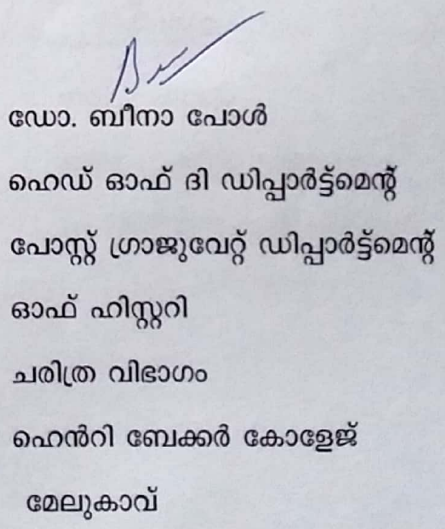 ഡോ. ബീനാ പോൾ
ഹെഡ് ഓഫ് ദി ഡിപ്പാർട്ട്മെന്റ്
പോസ്റ്റ് ഗ്രാജുവേറ്റ് ഡിപ്പാർട്ട്മെന്റ്
ഓഫ് ഹിസ്റ്ററി
ചരിത്ര വിഭാഗം
ഹെൻറി ബേക്കർ കോളേജ്
മേലുകാവ്